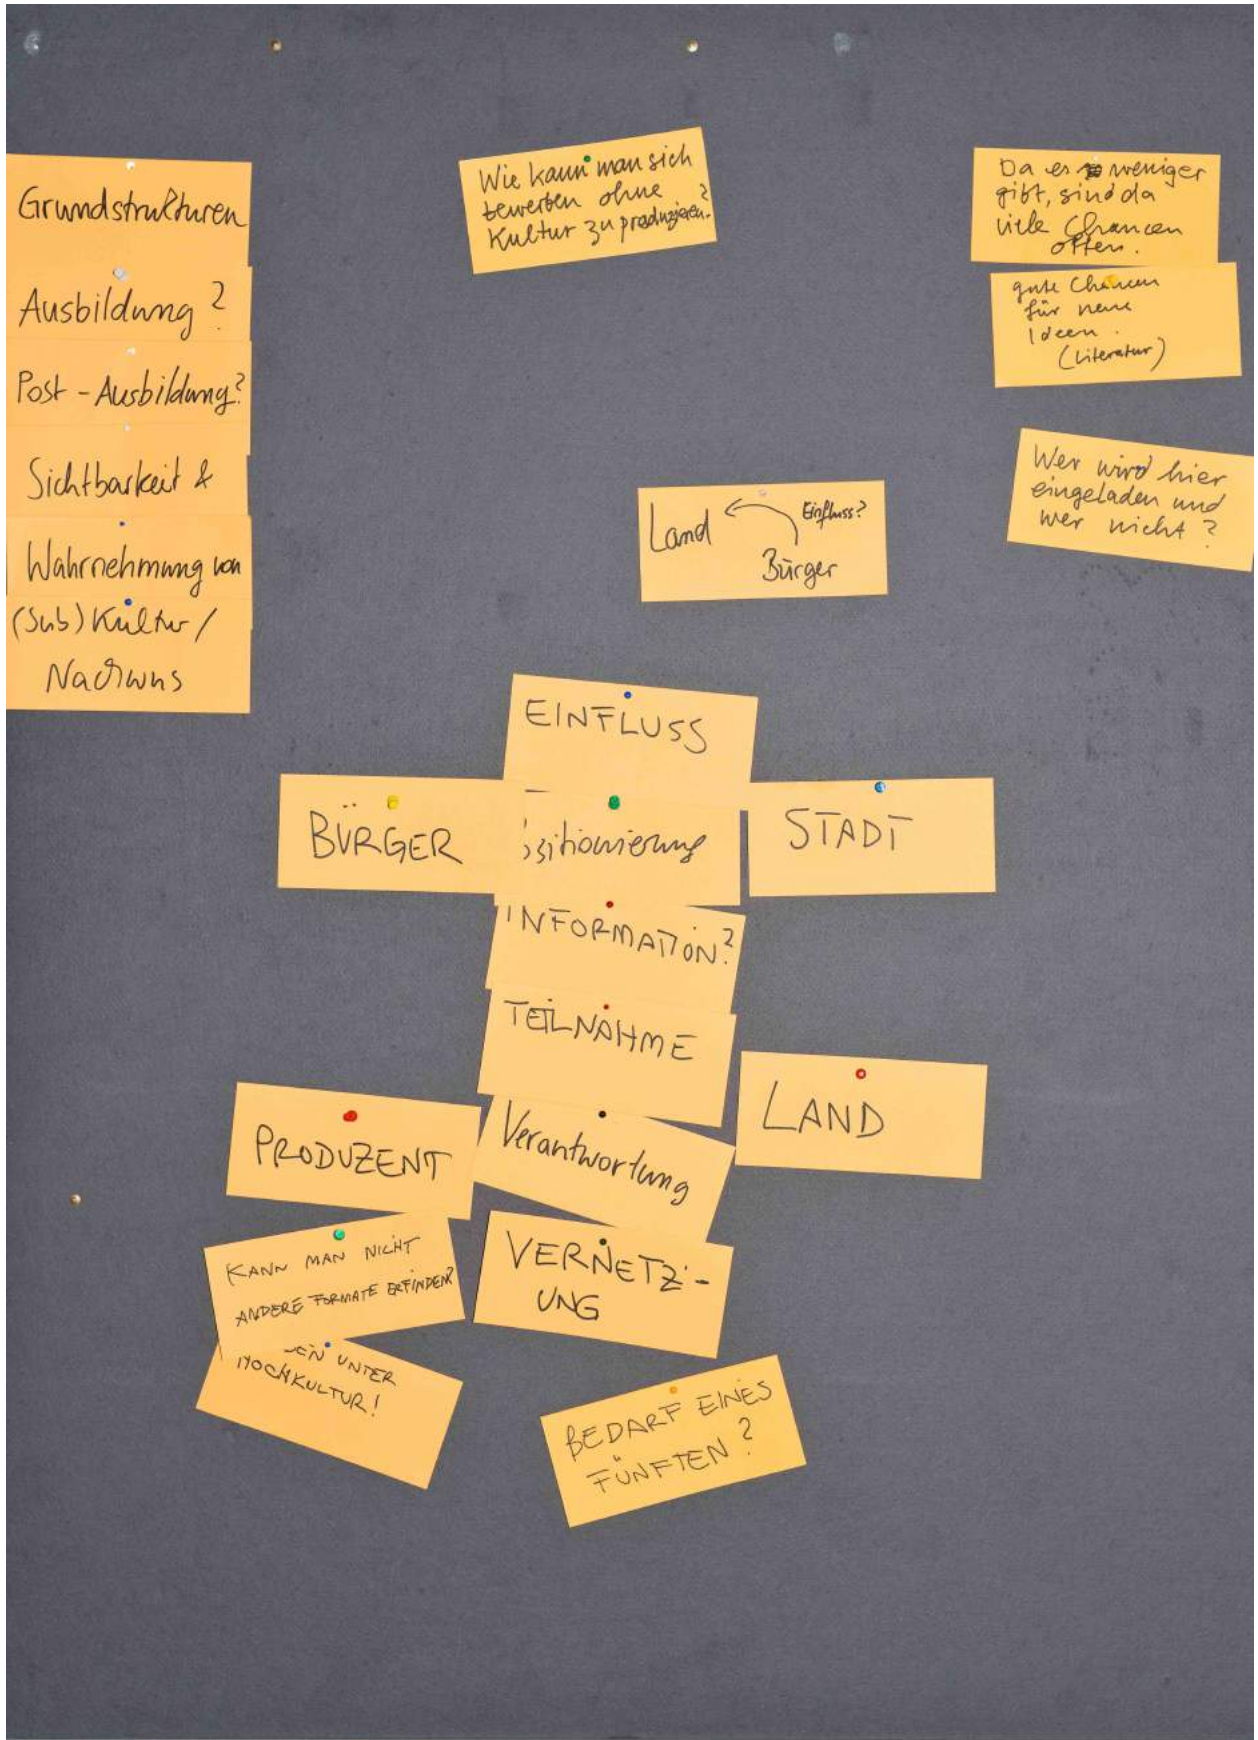 Grundstrukturen
Ausbildung?
Post-Ausbildung?
Sichtbarkeit &
Wahrnehmung von
(Sub)Kultur/
Nachwuns
Wie kann man sich
bewerben ohne
Kultur zu produzieren?
Da es weniger
gibt, sind da
viele Chancen
offen.
gute Chancen
für neue
Ideen.
(Literatur)
Wer wird hier
eingeladen und
wer nicht?
Land Einfluss?
Bürger
EINFLUSS
BÜRGER
ositionierung
STADT
INFORMATION?
TEILNAHME
LAND
PRODUZENT
Verantwortung
KANN MAN NICHT
ANDERE FORMATE ERFINDEN?
VERNETZ-
UNG
UNTER
HOCHKULTUR!
BEDARF EINES
FÜNFTEN?